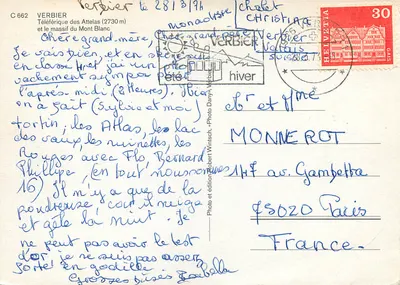 C 662 VERBIER
Téléférique des Attelas (2730 m)
et le massif du Mont Blanc
Verbier le 28/3/76
Chère grand.mère,
cher grand père,
Je vais bien et en
en classe j'ai un
vachement sympa
l'après-midi (3 Heures). Hier
on a fait (Sylvie et moi)
tortin, les Attelas, les lac
des vaux, les ruinettes, les
Rouges avec Flo, Bernard
Philippe (en tout nous sommes
16) Il n'y a que de la
poudreuse car il neige
et gèle la nuit. Je
ne peut pas avoir le test
d'or, je ne suis pas assez
forte en godille
Grosses bises Isabella
chalet
CHRISTINA
Verbier
Valais
Suisse
VERBIER
été hiver
HELVETIA
30
GAIS
Mr et Mme
MONNEROT
147 av. Gambetta
75020 Paris
France.